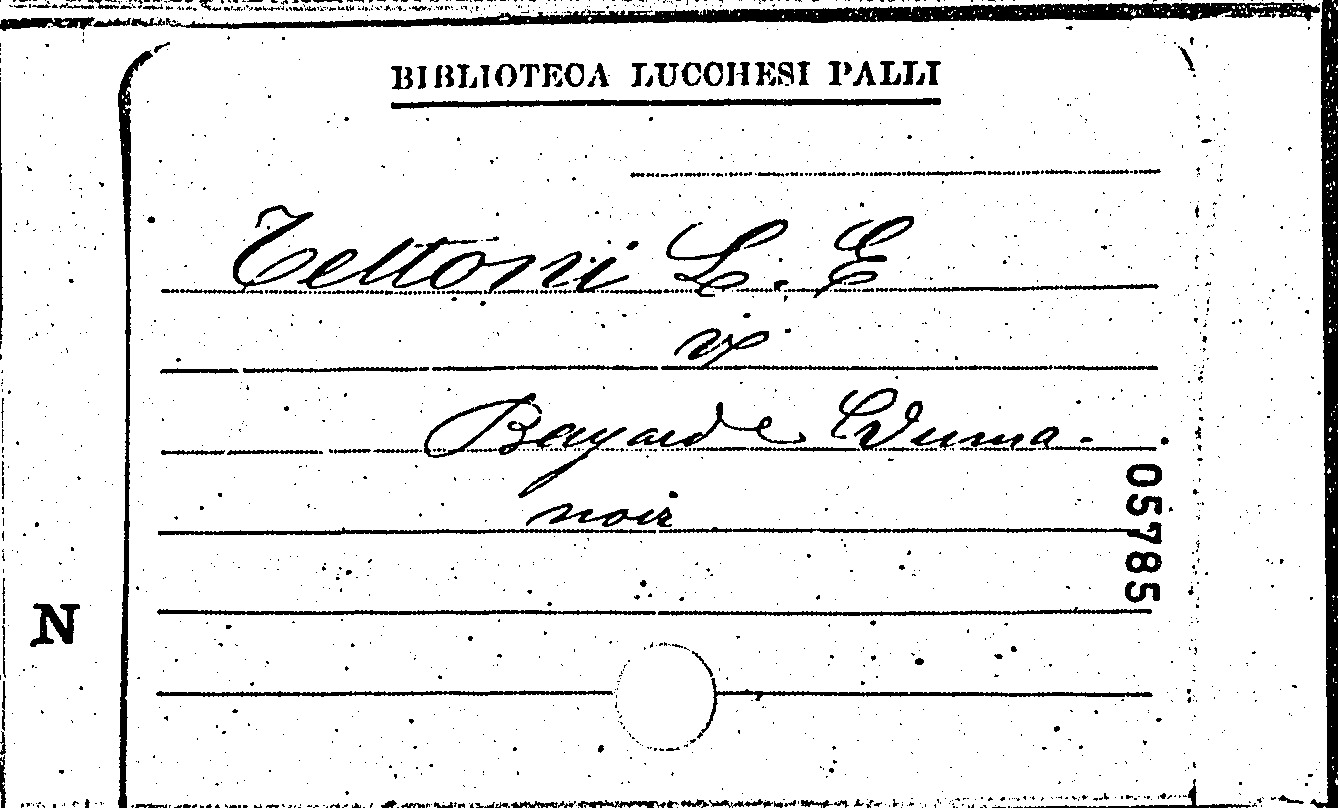 BIBLIOTECA LUCCHESI PALLI
Tettoni L. E
v
Bayard e Duma-
noir
05785
N